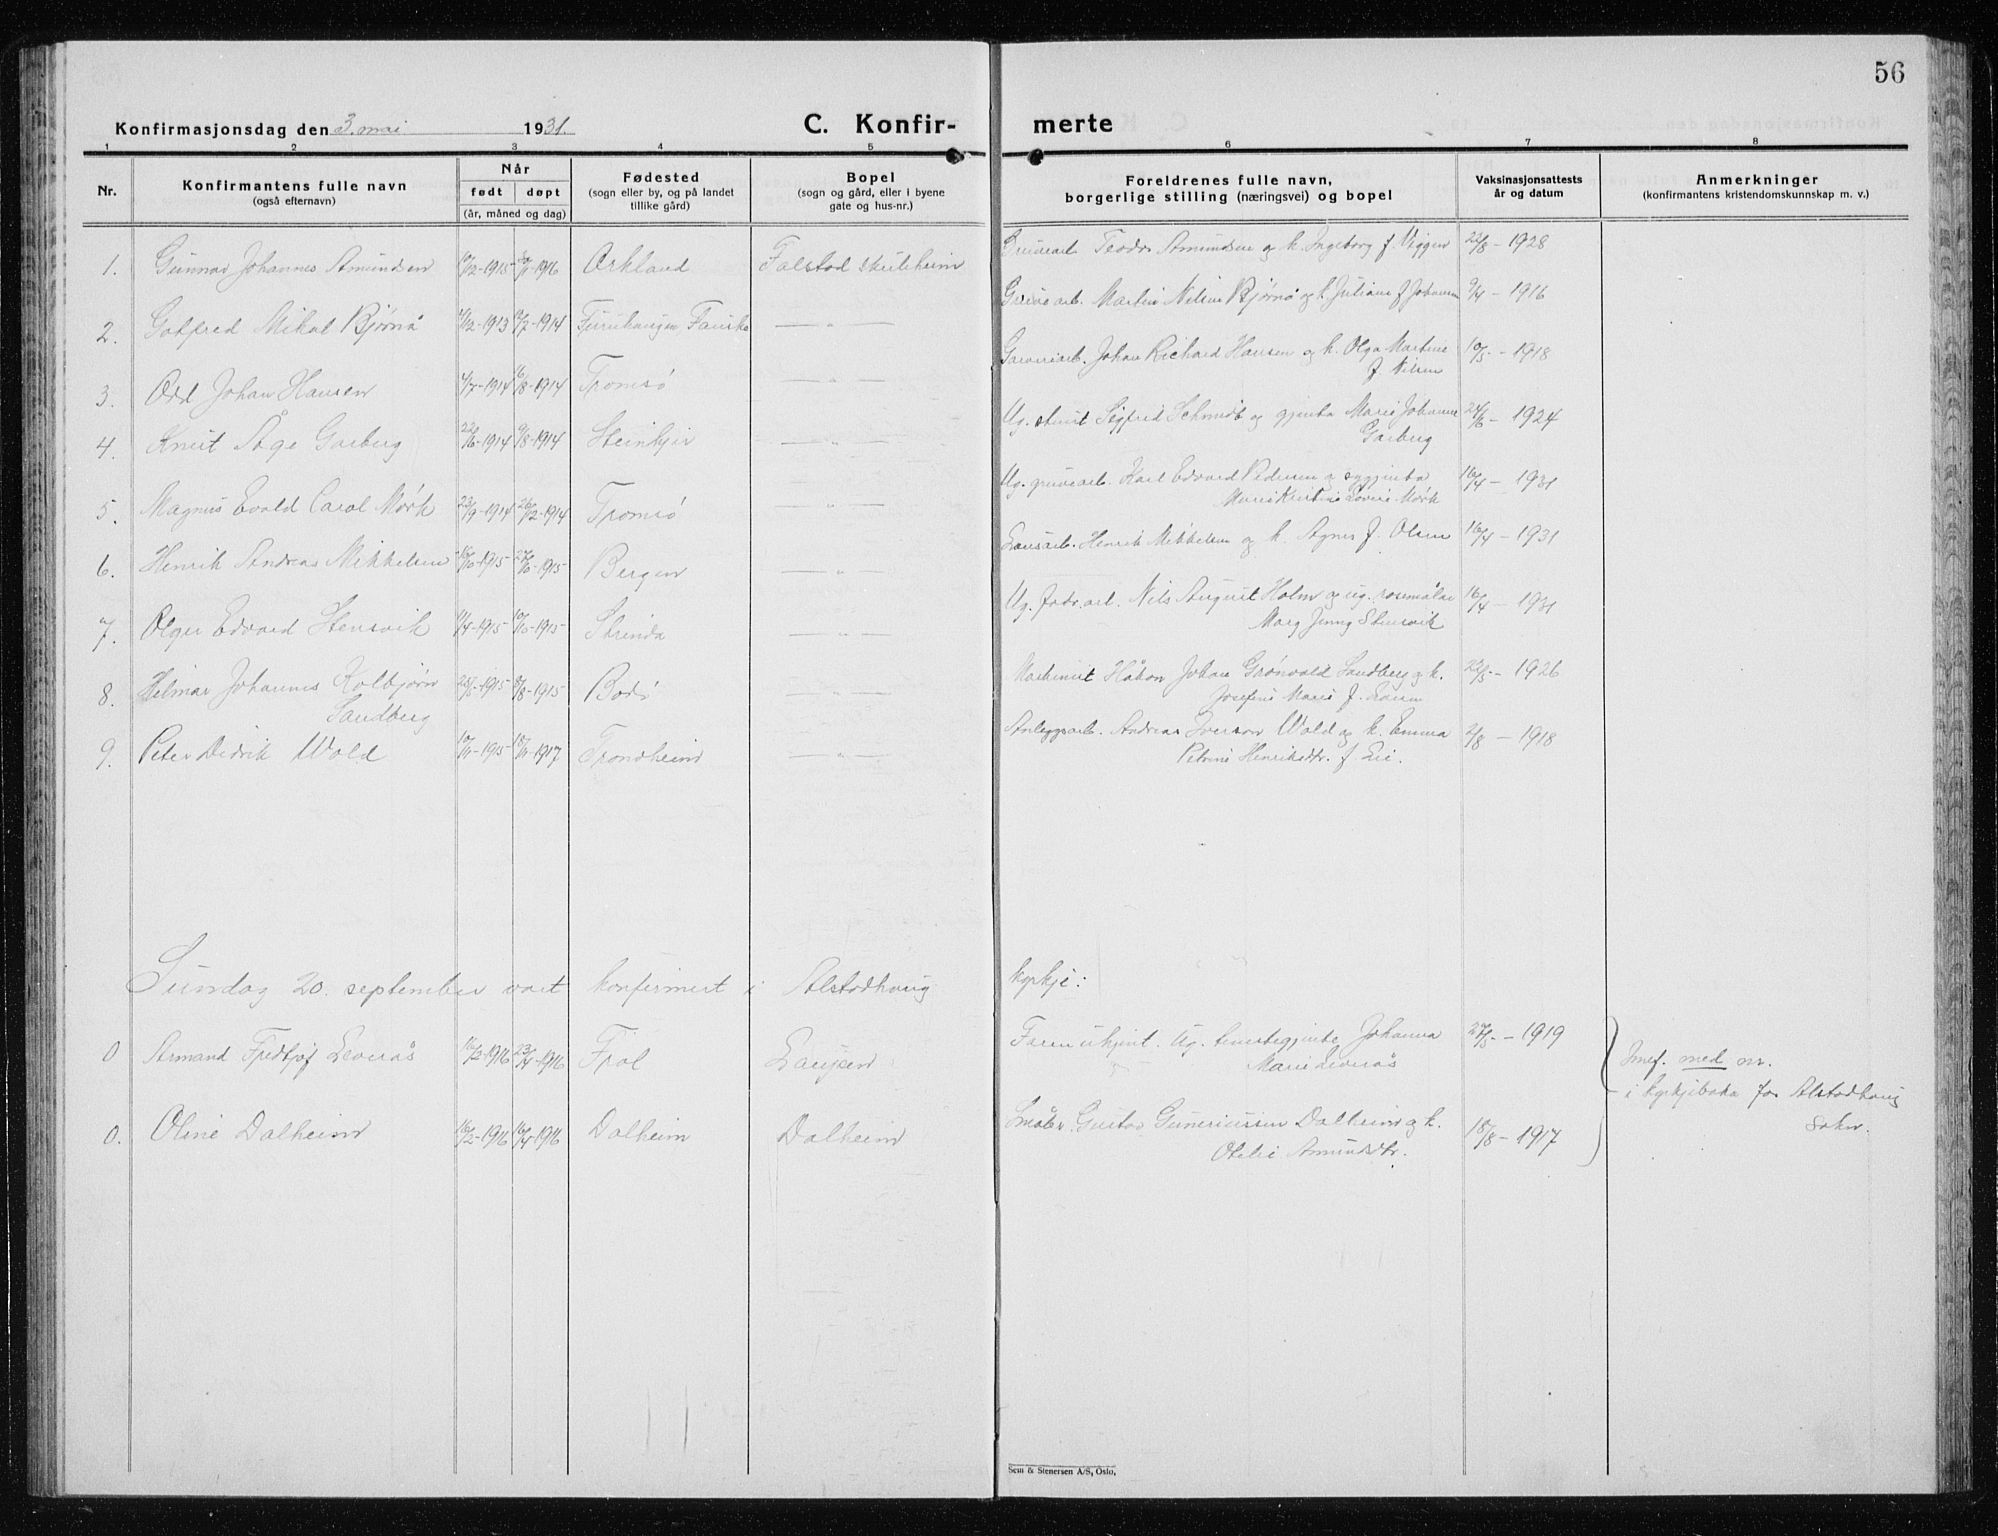 56
Konfirmasjonsdag den 3. mai 1931. C. Konfir- merte
1 2 3 4 5 6 7 8
Nr.
Konfirmantens fulle navn
(også efternavn)
Når
født døpt
(år, måned og dag)
Fødested
(sogn eller by, og på landet
tillike gård)
Bopel
(sogn og gård, eller i byene
gate og hus-nr.)
Foreldrenes fulle navn,
borgerlige stilling (næringsvei) og bopel
Vaksinasjonsattests
år og datum
Anmerkninger
(konfirmantens kristendomskunnskap m. v.)
1. Gunnar Johannes Amundsen -1915 -1916 Orkland Falstad skuleheim Gruvearb. Teodor Amundsen og k. Ingeborg f. Viggen 22/8 - 1928
2. Gotfred Mikal Bjørnå 4/12-1913 -1914 Furuhaugen Fauske — „ — Gruvearb. Martin Nilsen Bjørnå og k. Juliane f. Johansen 9/4 - 1916
3. Odd Johan Hansen -1914 16/8-1914 Tromsø — „ — Johan Richard Hansen og k. Olga Martine 10/5 - 1918
f. Nilsen
4. Knut Åge Garberg 22/6-1914 9/8-1914 Steinkjer — „ — Ug. Sigfred Schmidt og gjenta Marie Johanne 24/6 - 1924
Garberg
5. Magnus Evald Carol Mørk 23/9-1914 26/12-1914 Tromsø — „ — Ug. gruvearb. Karl Edvard Pedersen og sygjenta 16/4 - 1931
Marie Kristine Lovise Mørk
6. Henrik Andreas Mikkelsen 16/10-1915 -1915 Bergen — „ — Lausarb. Henrik Mikkelsen og k. Agnes f. Olsen 16/4 - 1931
7. Olger Edvard Stensvik 11/4-1915 10/10-1915 Strinda — „ — Ug. fabr.arb. Nils August Holm og ug. rosemålar 16/4 - 1931
Marg Jenny Stensvik
8. Helmar Johannes Kolbjørn -1915 -1915 Bodø — „ — Maskinist Håkon Johan Grønvold Sandberg og k. 22/5 - 1926
Sandberg Josefine Marie f.
9. Peter Didrik Wold 10/11-1915 18/11-1917 Trondheim — „ — Anleggsarb. Andreas Iverson Wold og k. Emma 2/8 - 1918
Petrine Henriksdtr. f. Lie.
Sundag 20. september vart konfirmert i Alstadhaug kyrkje:
0 Armand Fredtjof Leverås 16/2-1916 23/4-1916 Frol Faren ukjent. Ug. tenestegjente Johanna - 1919
Marie Leverås
0. Oline Dalheim 16/2-1916 16/4-1916 Dalheim Dalheim Småbr. Gustav Guneriussen Dalheim og k. 18/8 - 1917
Otelie Amundsdtr.
Innf. med nr.
i kyrkjeboka for Alstadhaug
Sokn.
Sem & Stenersen A/S, Oslo.